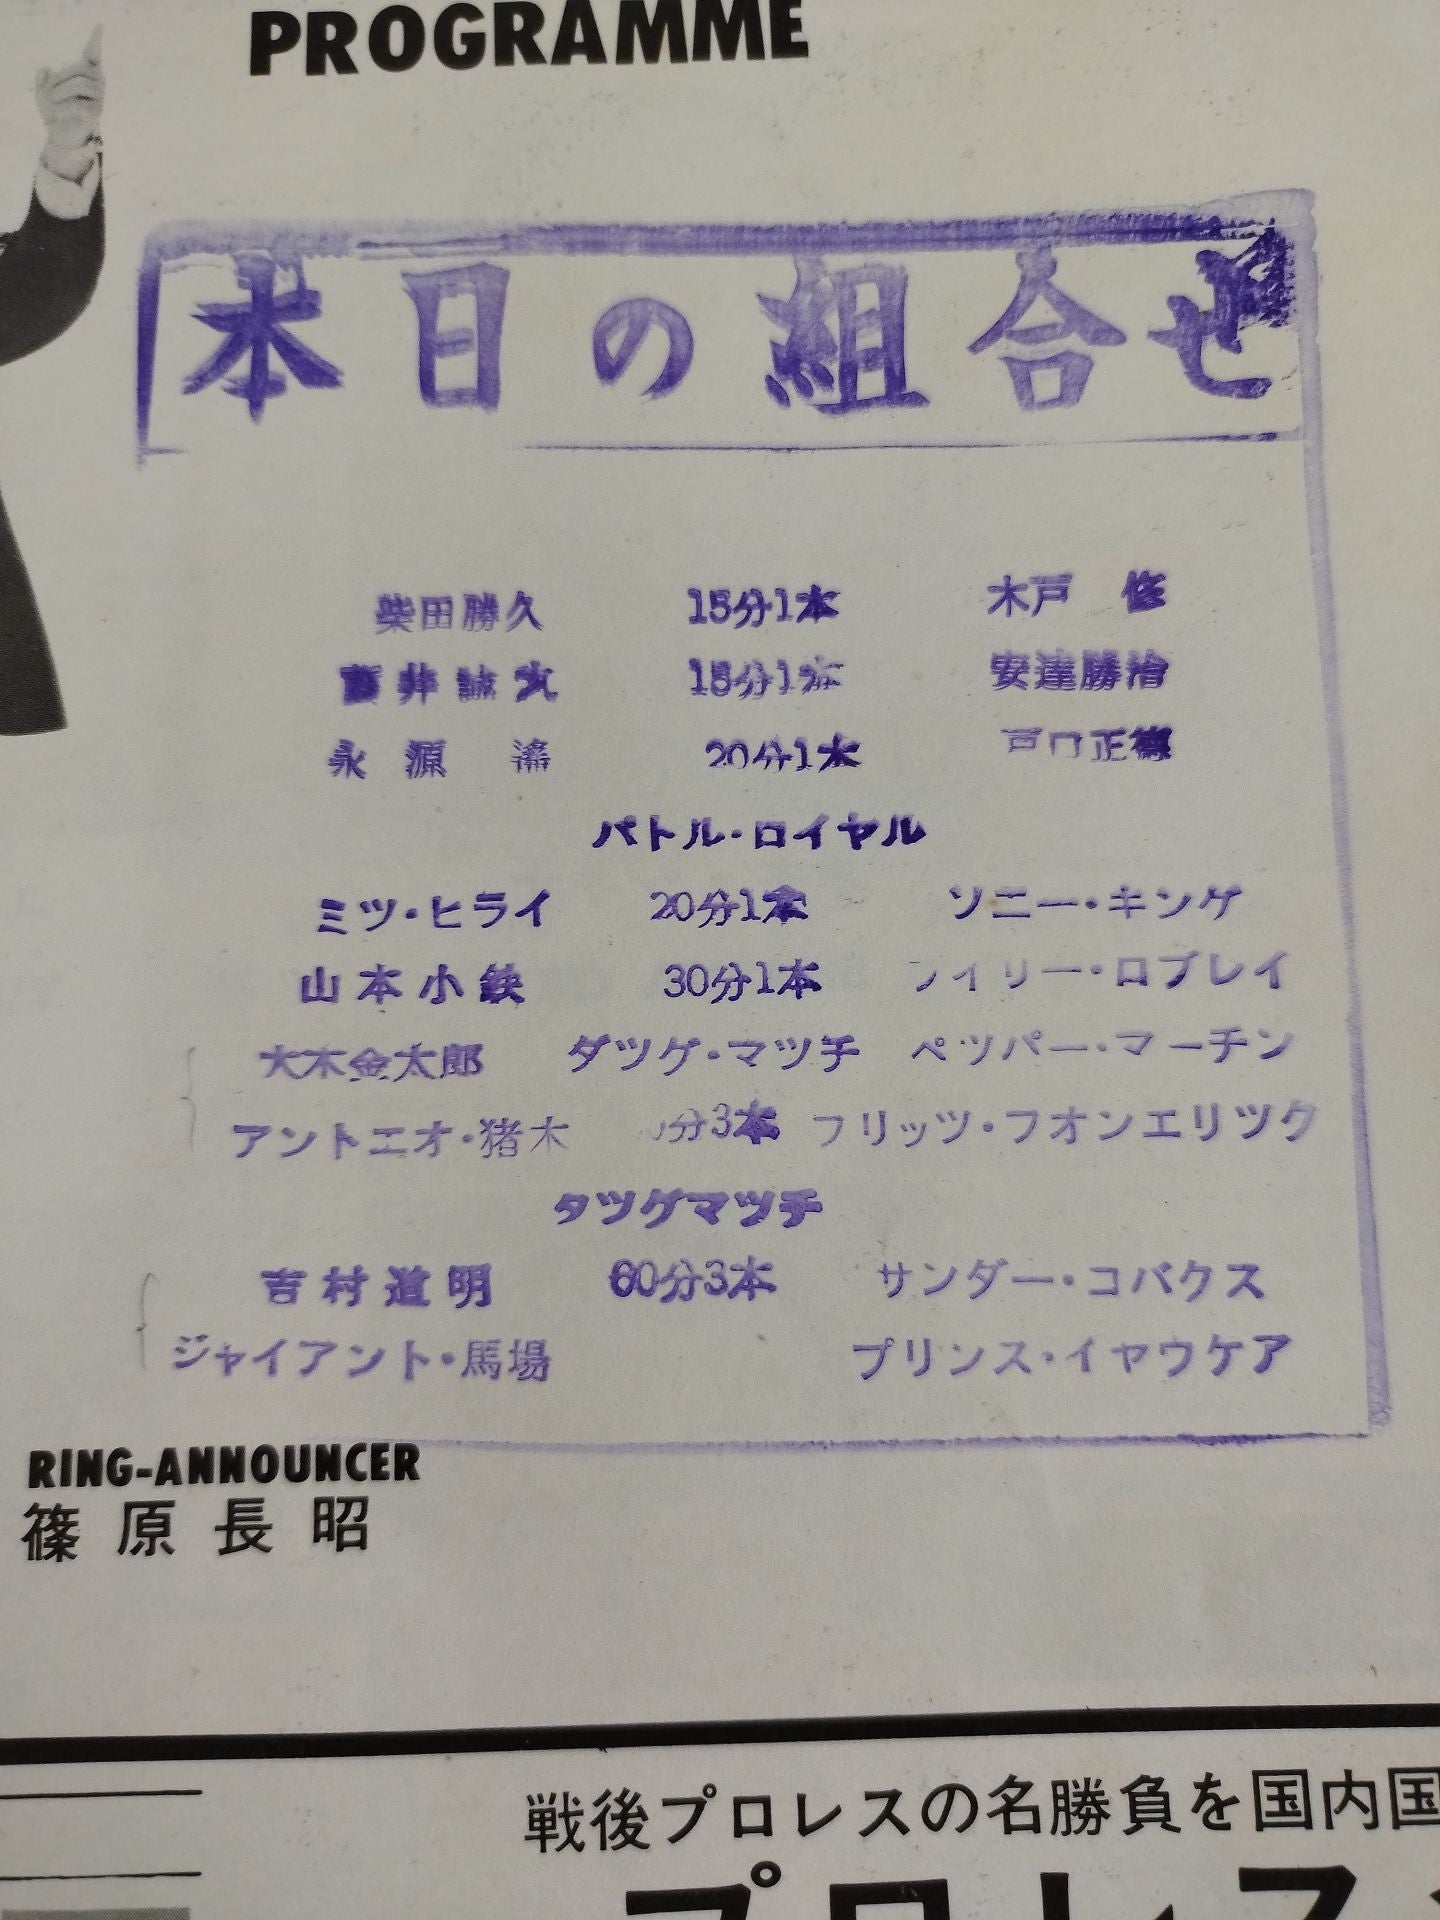 PROGRAMME
本日の組合せ
柴田勝久 15分1本 木戸 修
藤井誠之 15分1本 安達勝治
永源 遙 20分1本 戸口正徳
バトル・ロイヤル
ミツ・ヒライ 20分1本 ソニー・キング
山本小鉄 30分1本 イリー・ロブレイ
大木金太郎 タツグ・マツチ ペツパー・マーチン
アントニオ・猪木 分3本 フリッツ・フオンエリツク
タツグマツチ
吉村道明 60分3本 サンダー・コバクス
ジャイアント・馬場 プリンス・イヤウケア
RING-ANNOUNCER
篠原長昭
戦後プロレスの名勝負を国内国
プロレス